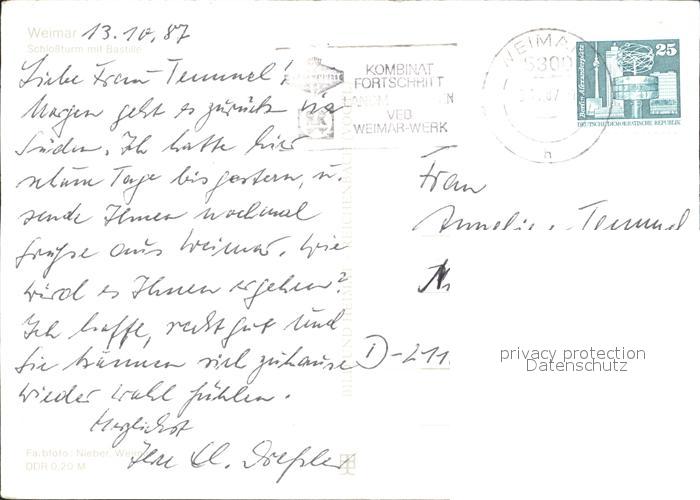 Weimar 13.10.87
Schloßturm mit Bastille
Liebe Frau Temmel!
Morgen geht es zurück na
Süden. Ich hatte hier
schöne Tage bis gestern, u.
sende Ihnen nochmal
Grüße aus Weimar. Wie
wird es Ihnen ergehen?
Ich hoffe, recht gut und
Sie können sich zuhause
wieder wohl fühlen.
Herzlichst
Ihre
Farbfoto: Nieber, Weim
DDR 0,20 M
KOMBINAT
FORTSCHRITT
VEB
WEIMAR-WERK
WEIMAR
5300
87
h
25
Berlin, Alexanderplatz
DEUTSCHE DEMOKRATISCHE REPUBLIK
Frau
Temmel
D-211
privacy protection
Datenschutz